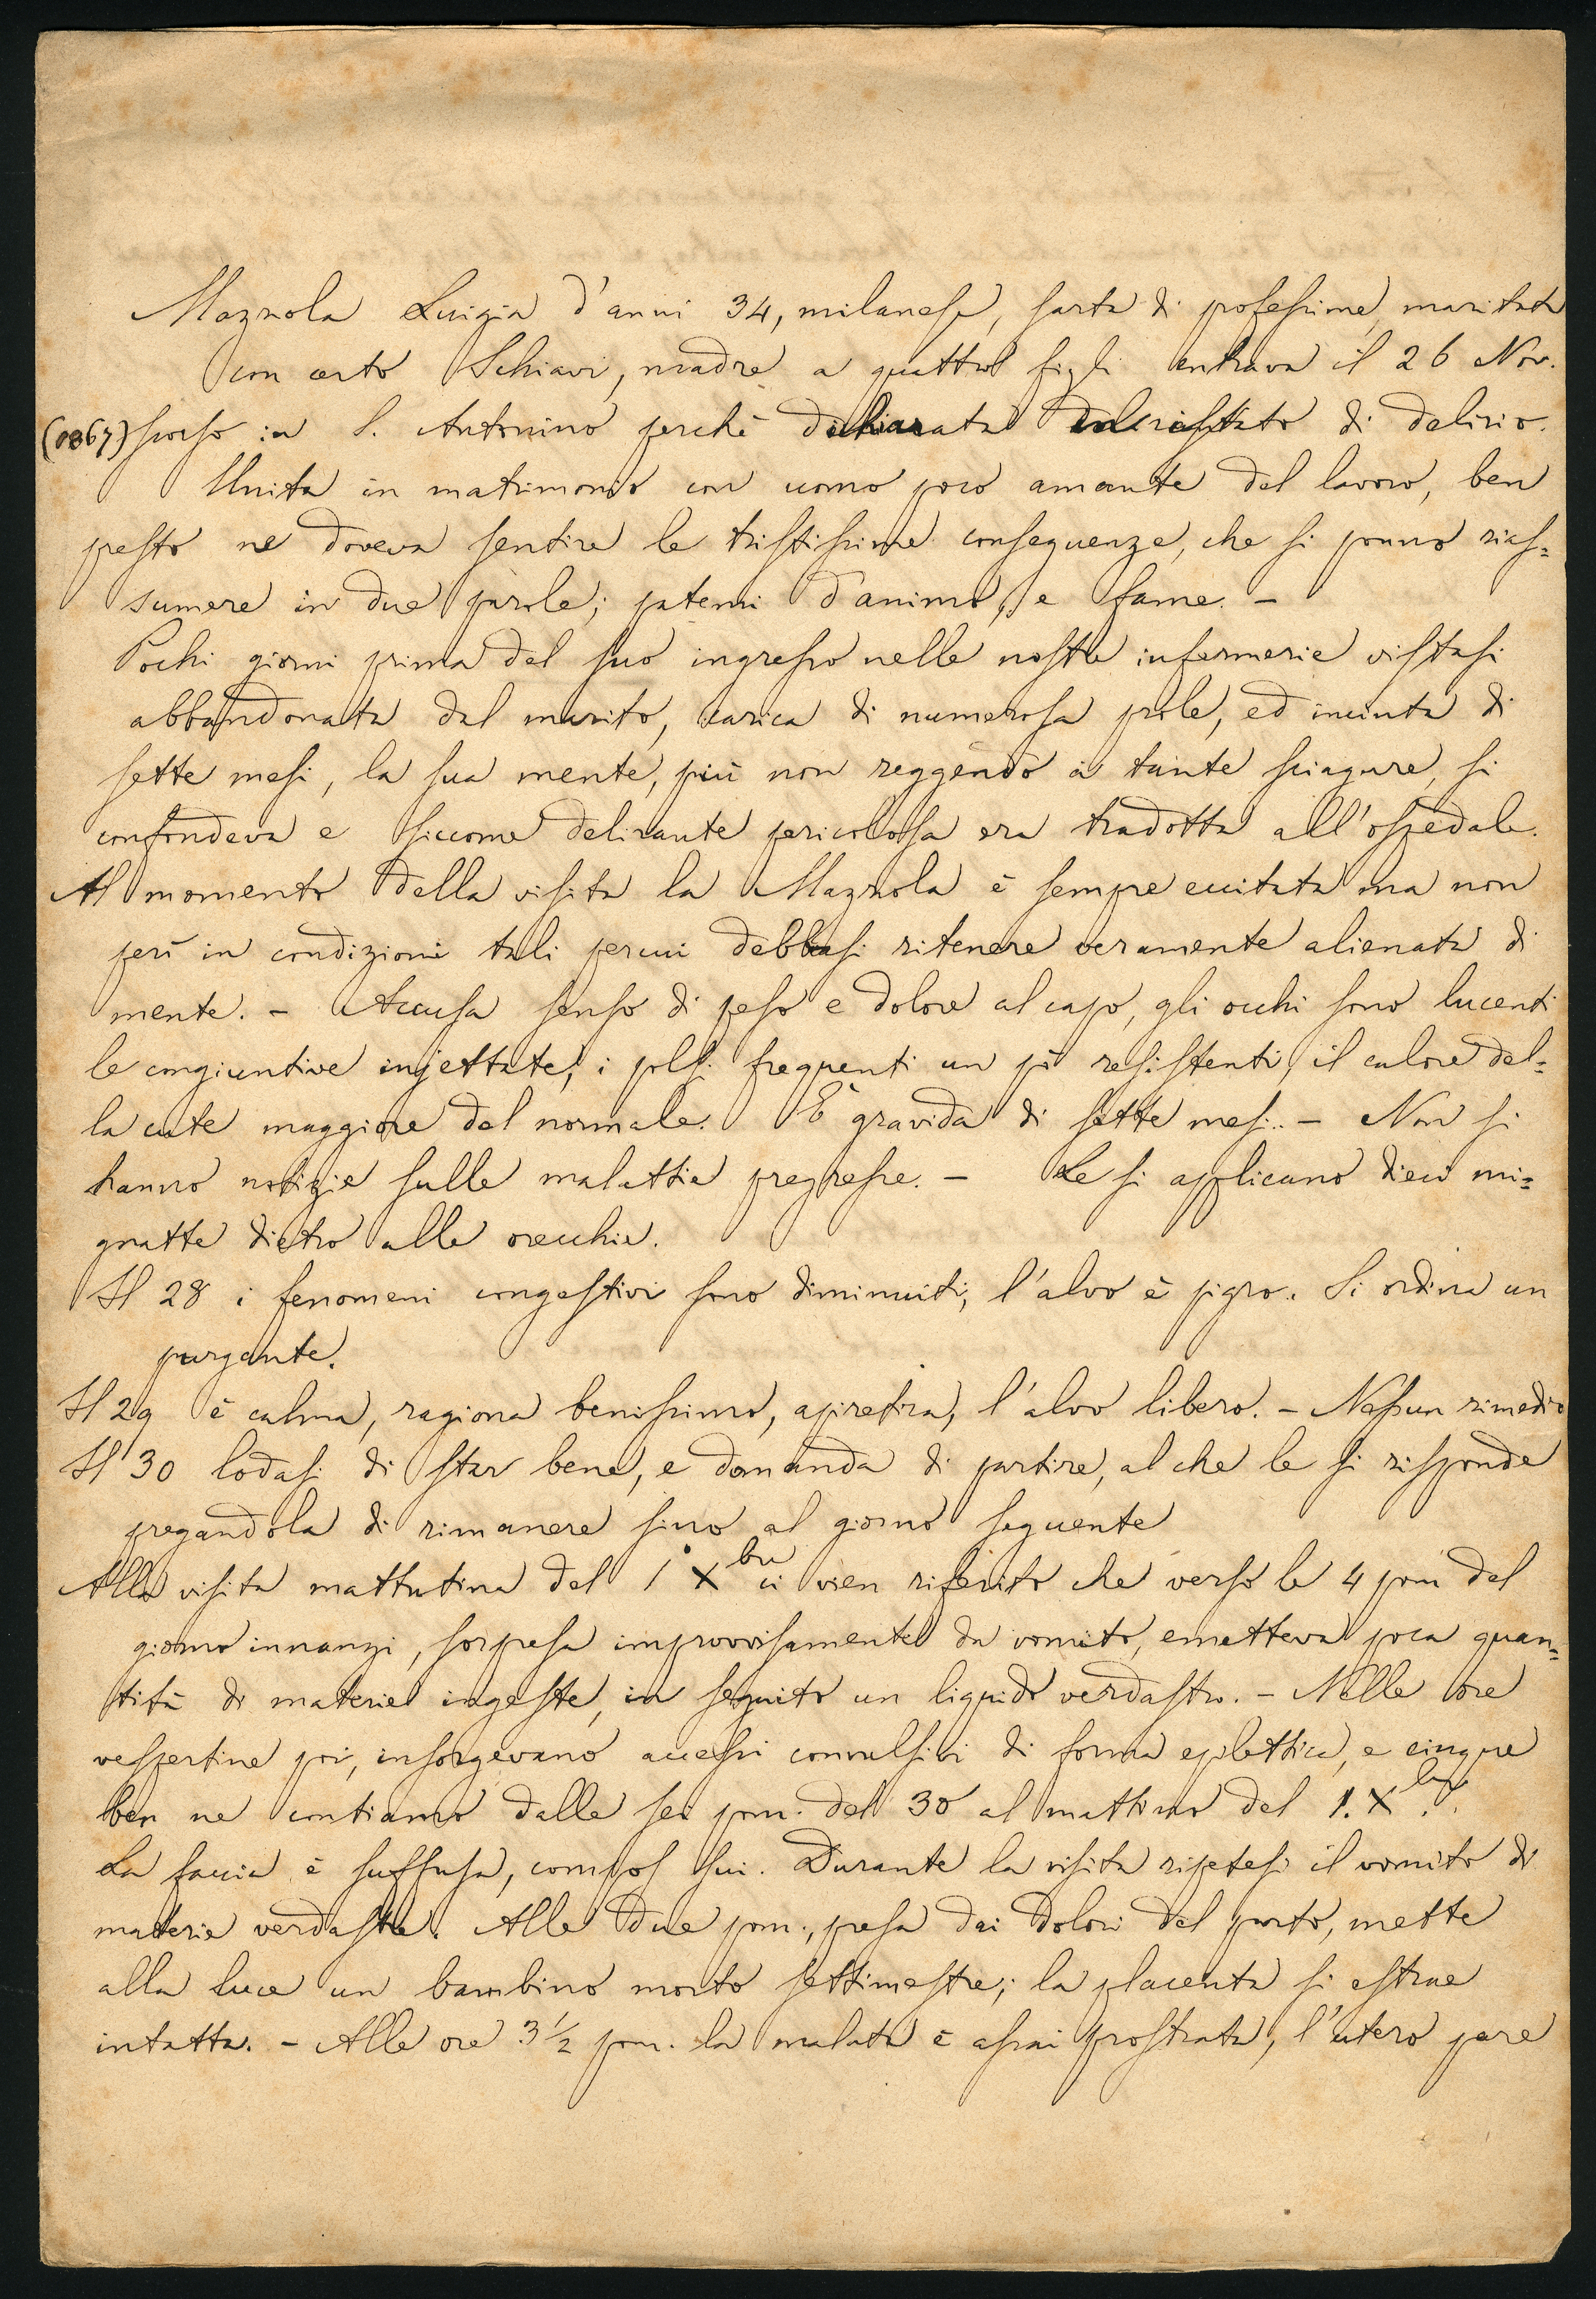 Maznola Luigia d'anni 34, milanese, sarta di professione, maritata
con certo Schiavi, madre a quattro figli entrava il 26 Nov.
(1867) scorso in S. Antonino perchè dichiarata in istato di delirio.
Unita in matrimonio con uomo poco amante del lavoro, ben
presto ne doveva sentire le tristissime conseguenze, che si ponno rias=
sumere in due parole; patemi d'animo, e fame. -
Pochi giorni prima del suo ingresso nelle nostre infermerie vistasi
abbandonata dal marito, carica di numerosa prole, ed incinta di
sette mesi, la sua mente, più non reggendo a tante sciagure, si
confondeva e siccome delirante pericolosa era tradotta all'ospedale.
Al momento della visita la Maznola è sempre eccitata ma non
però in condizioni tali percui debbasi ritenere veramente alienata di
mente. - Accusa senso di peso e dolore al capo, gli occhi sono lucenti
le congiuntive injettate, i polsi frequenti un pò resistenti, il calore del=
la cute maggiore del normale. È gravida di sette mesi. - Non si
hanno notizie sulle malattie pregresse. - Le si applicano dieci mi=
gnatte dietro alle orecchie.
Il 28 i fenomeni congestivi sono diminuiti, l'alvo è pigro. Si ordina un
purgante.
Il 29 è calma, ragiona benissimo, apiretica, l'alvo libero. - Nessun rimedio
Il 30 lodasi di star bene, e domanda di partire, al che le si risponde
pregandola di rimanere sino al giorno seguente
Alla visita mattutina del 1° Xbre ci vien riferito che verso le 4 pom del
giorno innanzi, sorpresa improvvisamente da vomito, emetteva poca quan=
tità di materie ingeste, in seguito un liquido verdastro. - Nelle ore
vespertine poi, insorgevano accessi convulsivi di forma eplettica, e cinque
ben ne contiamo dalle sei pom. del 30 al mattino del 1. Xbre.
La faccia è suffusa, compos sui. Durante la visita ripetesi il vomito di
materie verdastre. Alle due pom., presa dai dolori del parto, mette
alla luce un bambino morto settimestre; la placenta si estrae
intatta. - Alle ore 3 ½ pom. la malata è assai prostrata, l'utero pare